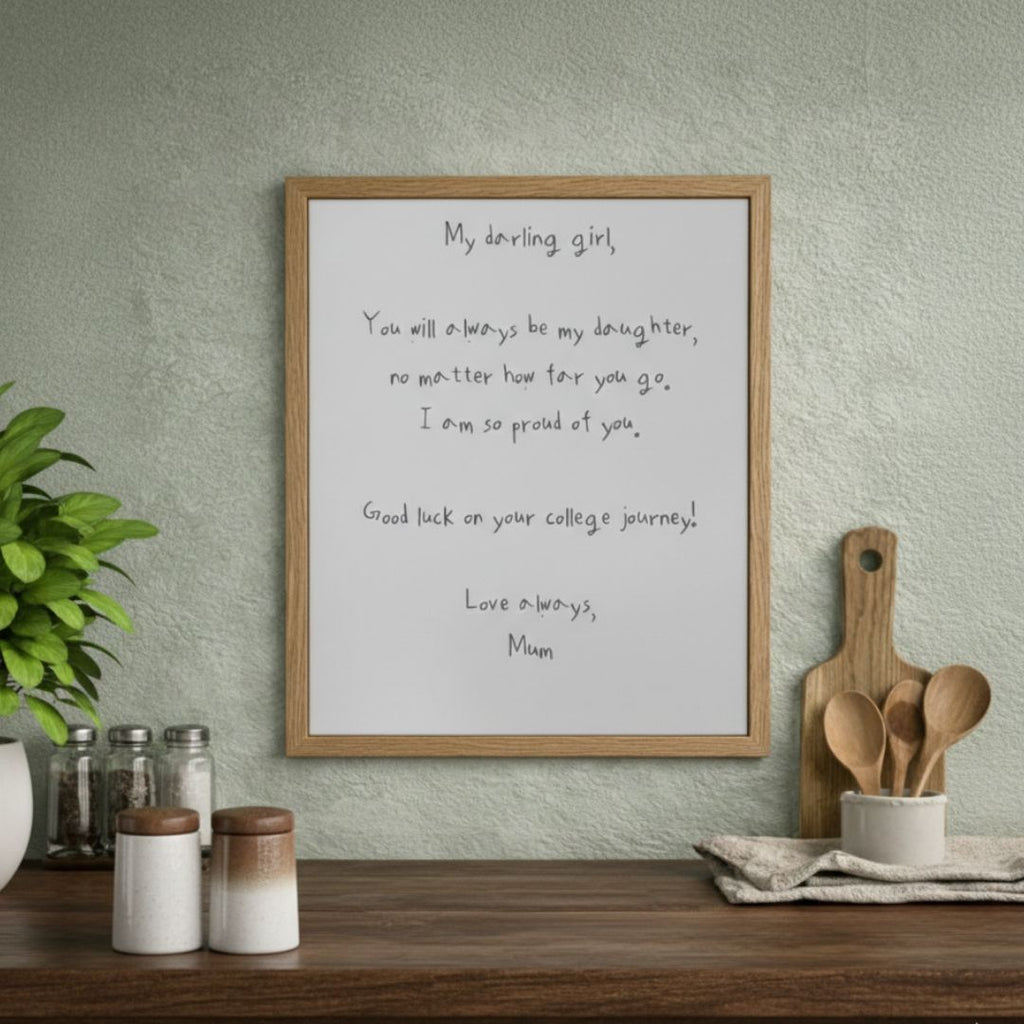 My darling girl,
You will always be my daughter,
no matter how far you go.
I am so proud of you.
Good luck on your college journey!
Love always,
Mum